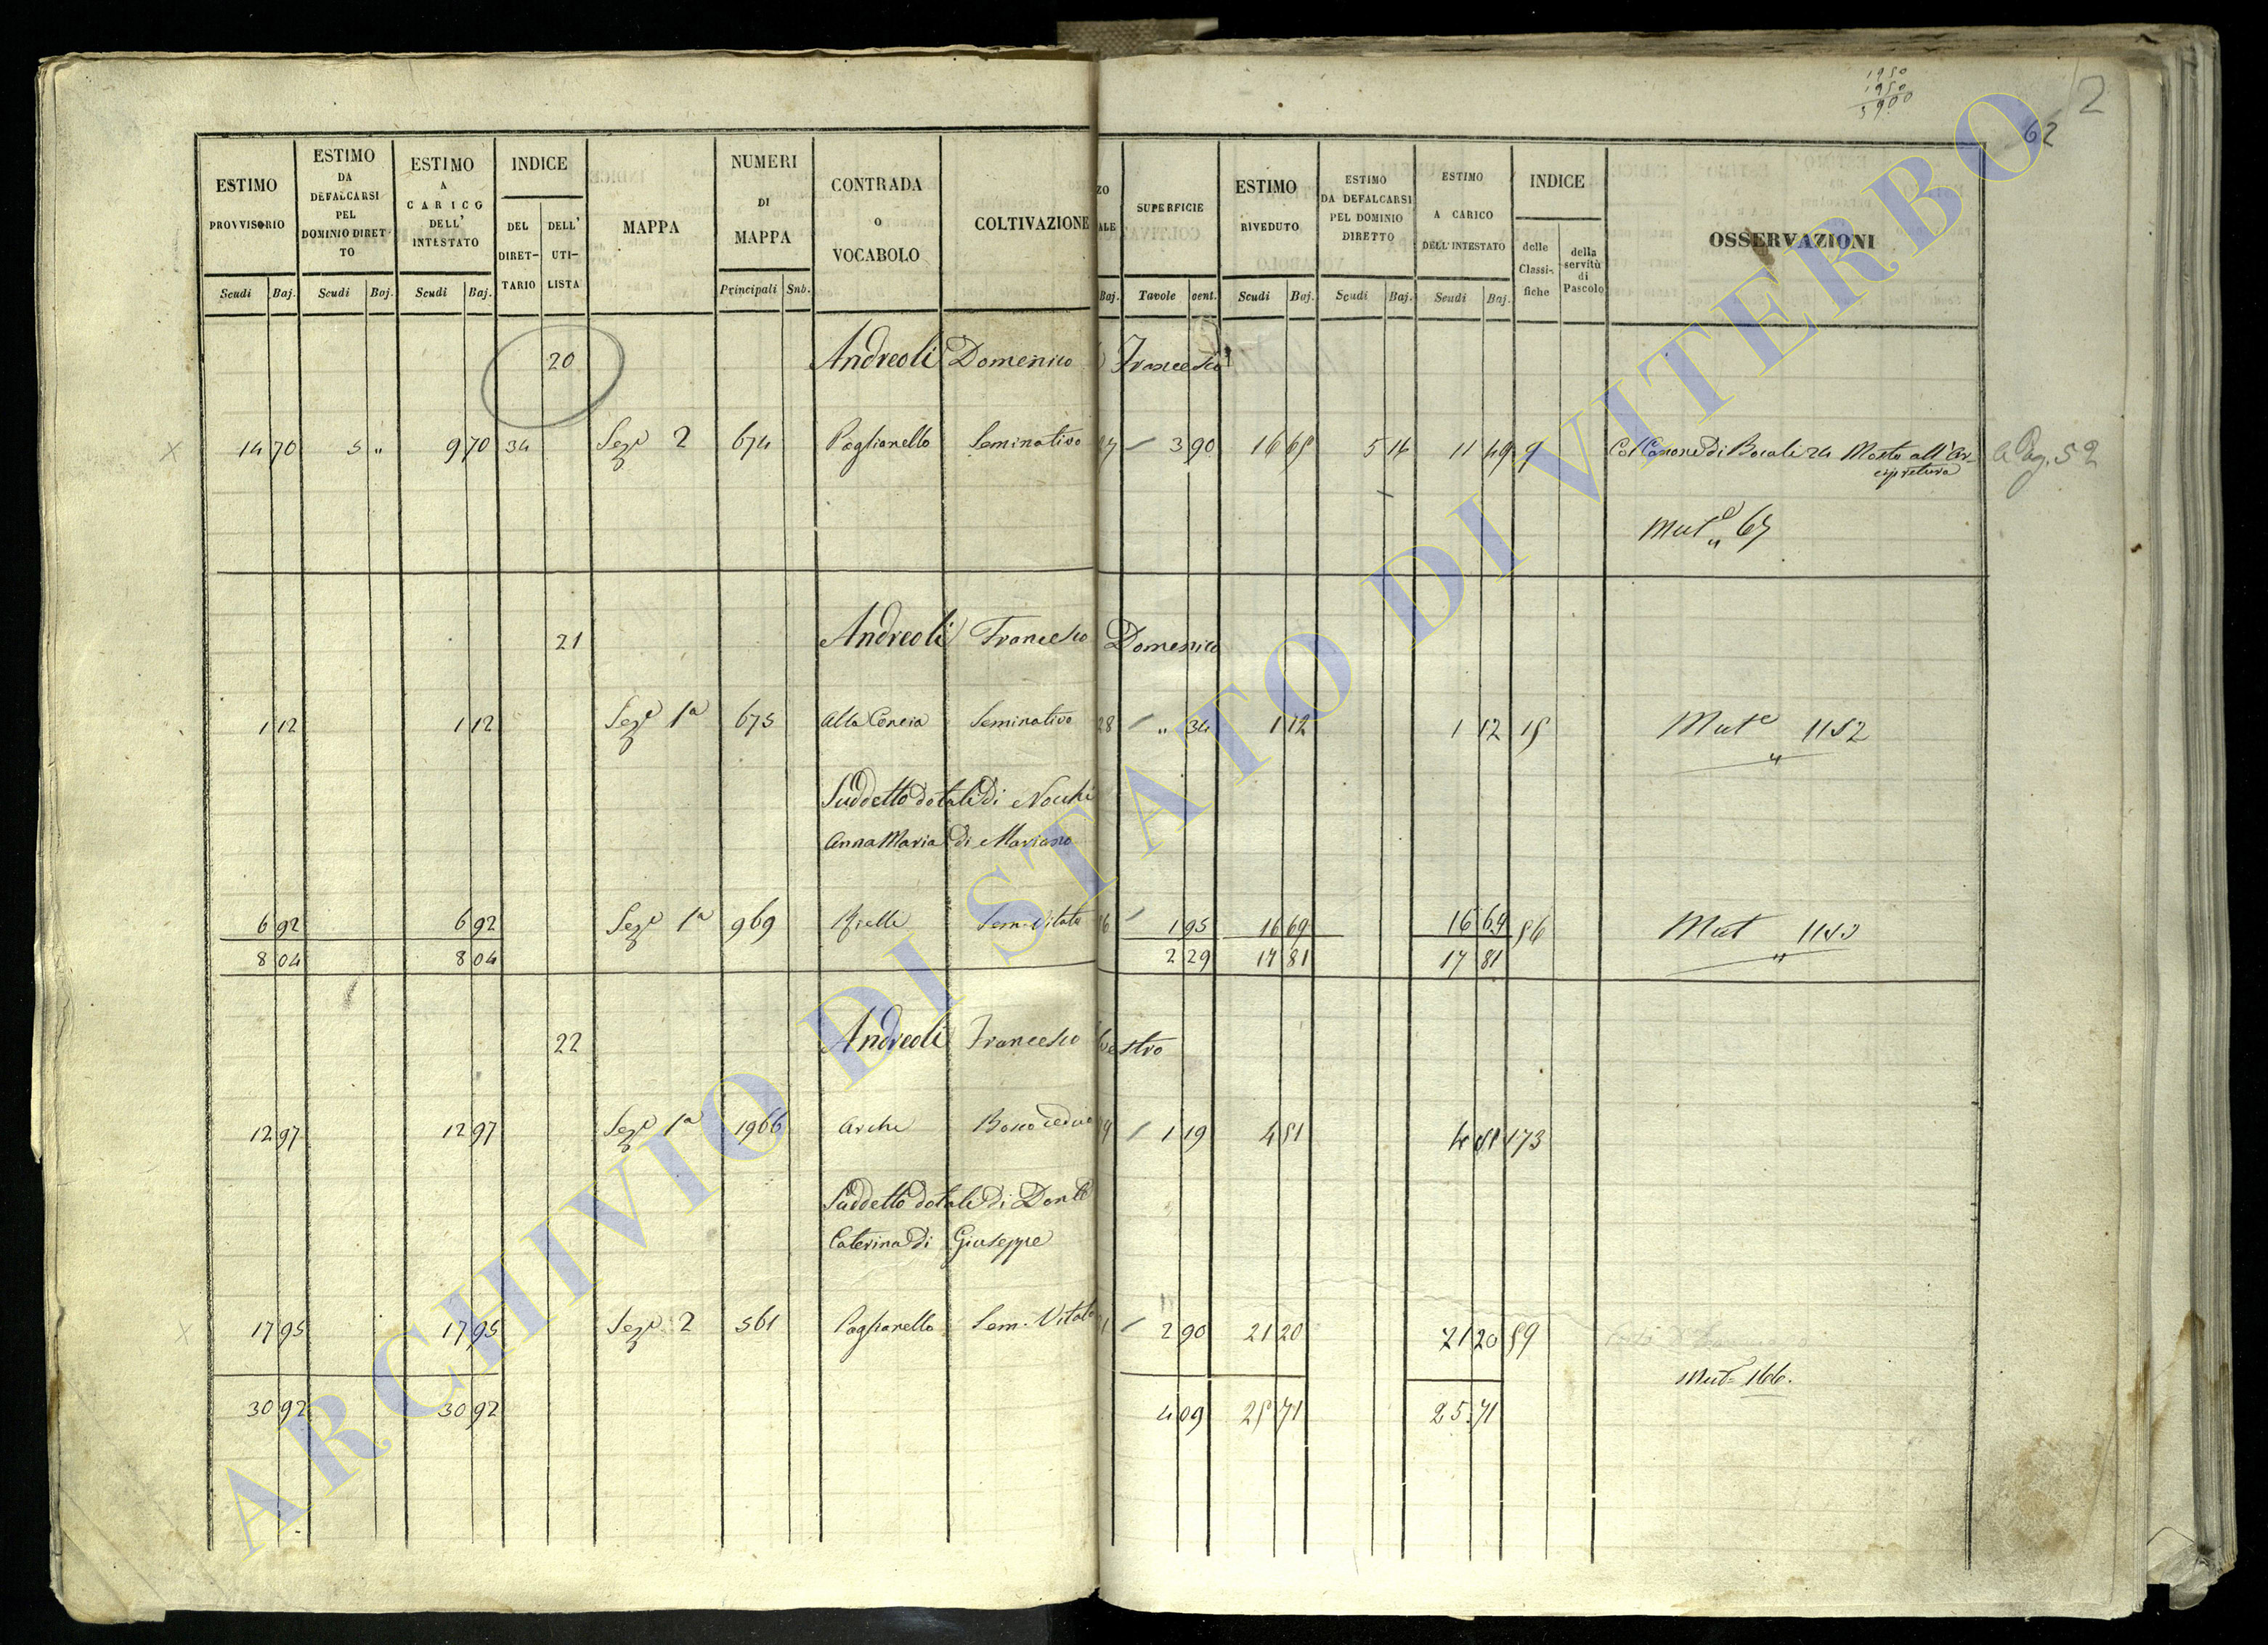 1950
1950
3900
2
62
ESTIMO PROVVISORIO
ESTIMO DA DEFALCARSI PEL DOMINIO DIRETTO
ESTIMO A CARICO DELL' INTESTATO
INDICE
DEL DIRETTARIO
DELL' UTILISTA
MAPPA
NUMERI DI MAPPA
CONTRADA O VOCABOLO
COLTIVAZIONE
ZO
ALE
SUPERFICIE
ESTIMO RIVEDUTO
ESTIMO DA DEFALCARSI PEL DOMINIO DIRETTO
ESTIMO A CARICO DELL'INTESTATO
INDICE
delle Classifiche
della servitù di Pascolo
OSSERVAZIONI
Scudi Baj. Scudi Baj. Scudi Baj. Principali Sub. Baj. Tavole cent. Scudi Baj. Scudi Baj. Scudi Baj.
20 Andreoli Domenico Francesco
14 70 5 " 9 70 34 Seze 2 674 Poglianello Seminativo 3 90 16 65 5 16 11 49 9 Col Canone di Bocali 24 Mosto all'Arcipretura a Pag. 52
Mute 67
21 Andreoli Francesco Domenico
1 12 1 12 Seze 1a 675 Alla Concia Seminativo 28 " 34 1 12 1 12 15 Mute 1152
Suddetto dotali di Nocchi
Anna Maria di Mariano
6 92 6 92 Seze 1a 969 Sem. Vitato 6 1 95 16 69 16 69 56 Mut 1153
8 04 8 04 2 29 17 81 17 81
22 Andreoli Francesco estro
12 97 12 97 Seze 1a 1966 Arche Bosco ceduo 9 1 19 4 51 4 51 173
Suddetto dotali di
Caterina di Giuseppe
17 95 17 95 Seze 2 561 Poglianello Sem. Vitato 1 2 90 21 20 21 20 59
Mut. 166.
30 92 30 92 4 09 25 71 25 71
ARCHIVIO DI STATO DI VITERBO